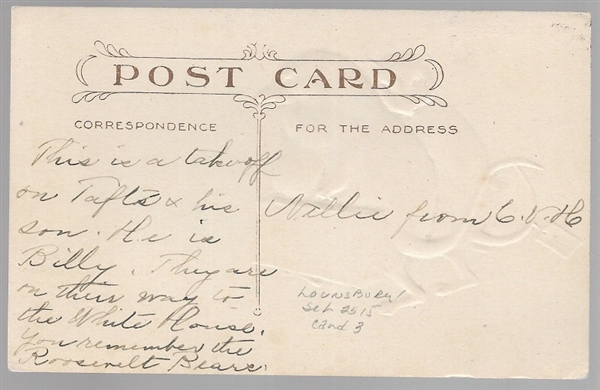 POST CARD
CORRESPONDENCE
FOR THE ADDRESS
This is a takeoff
on Tafts & his
son. He is
Billy. They are
on their way to
the White House.
You remember the
Roosevelt Bears.
Nellie from C.V.H
LOUNSBURY
Set 2515
Card 3